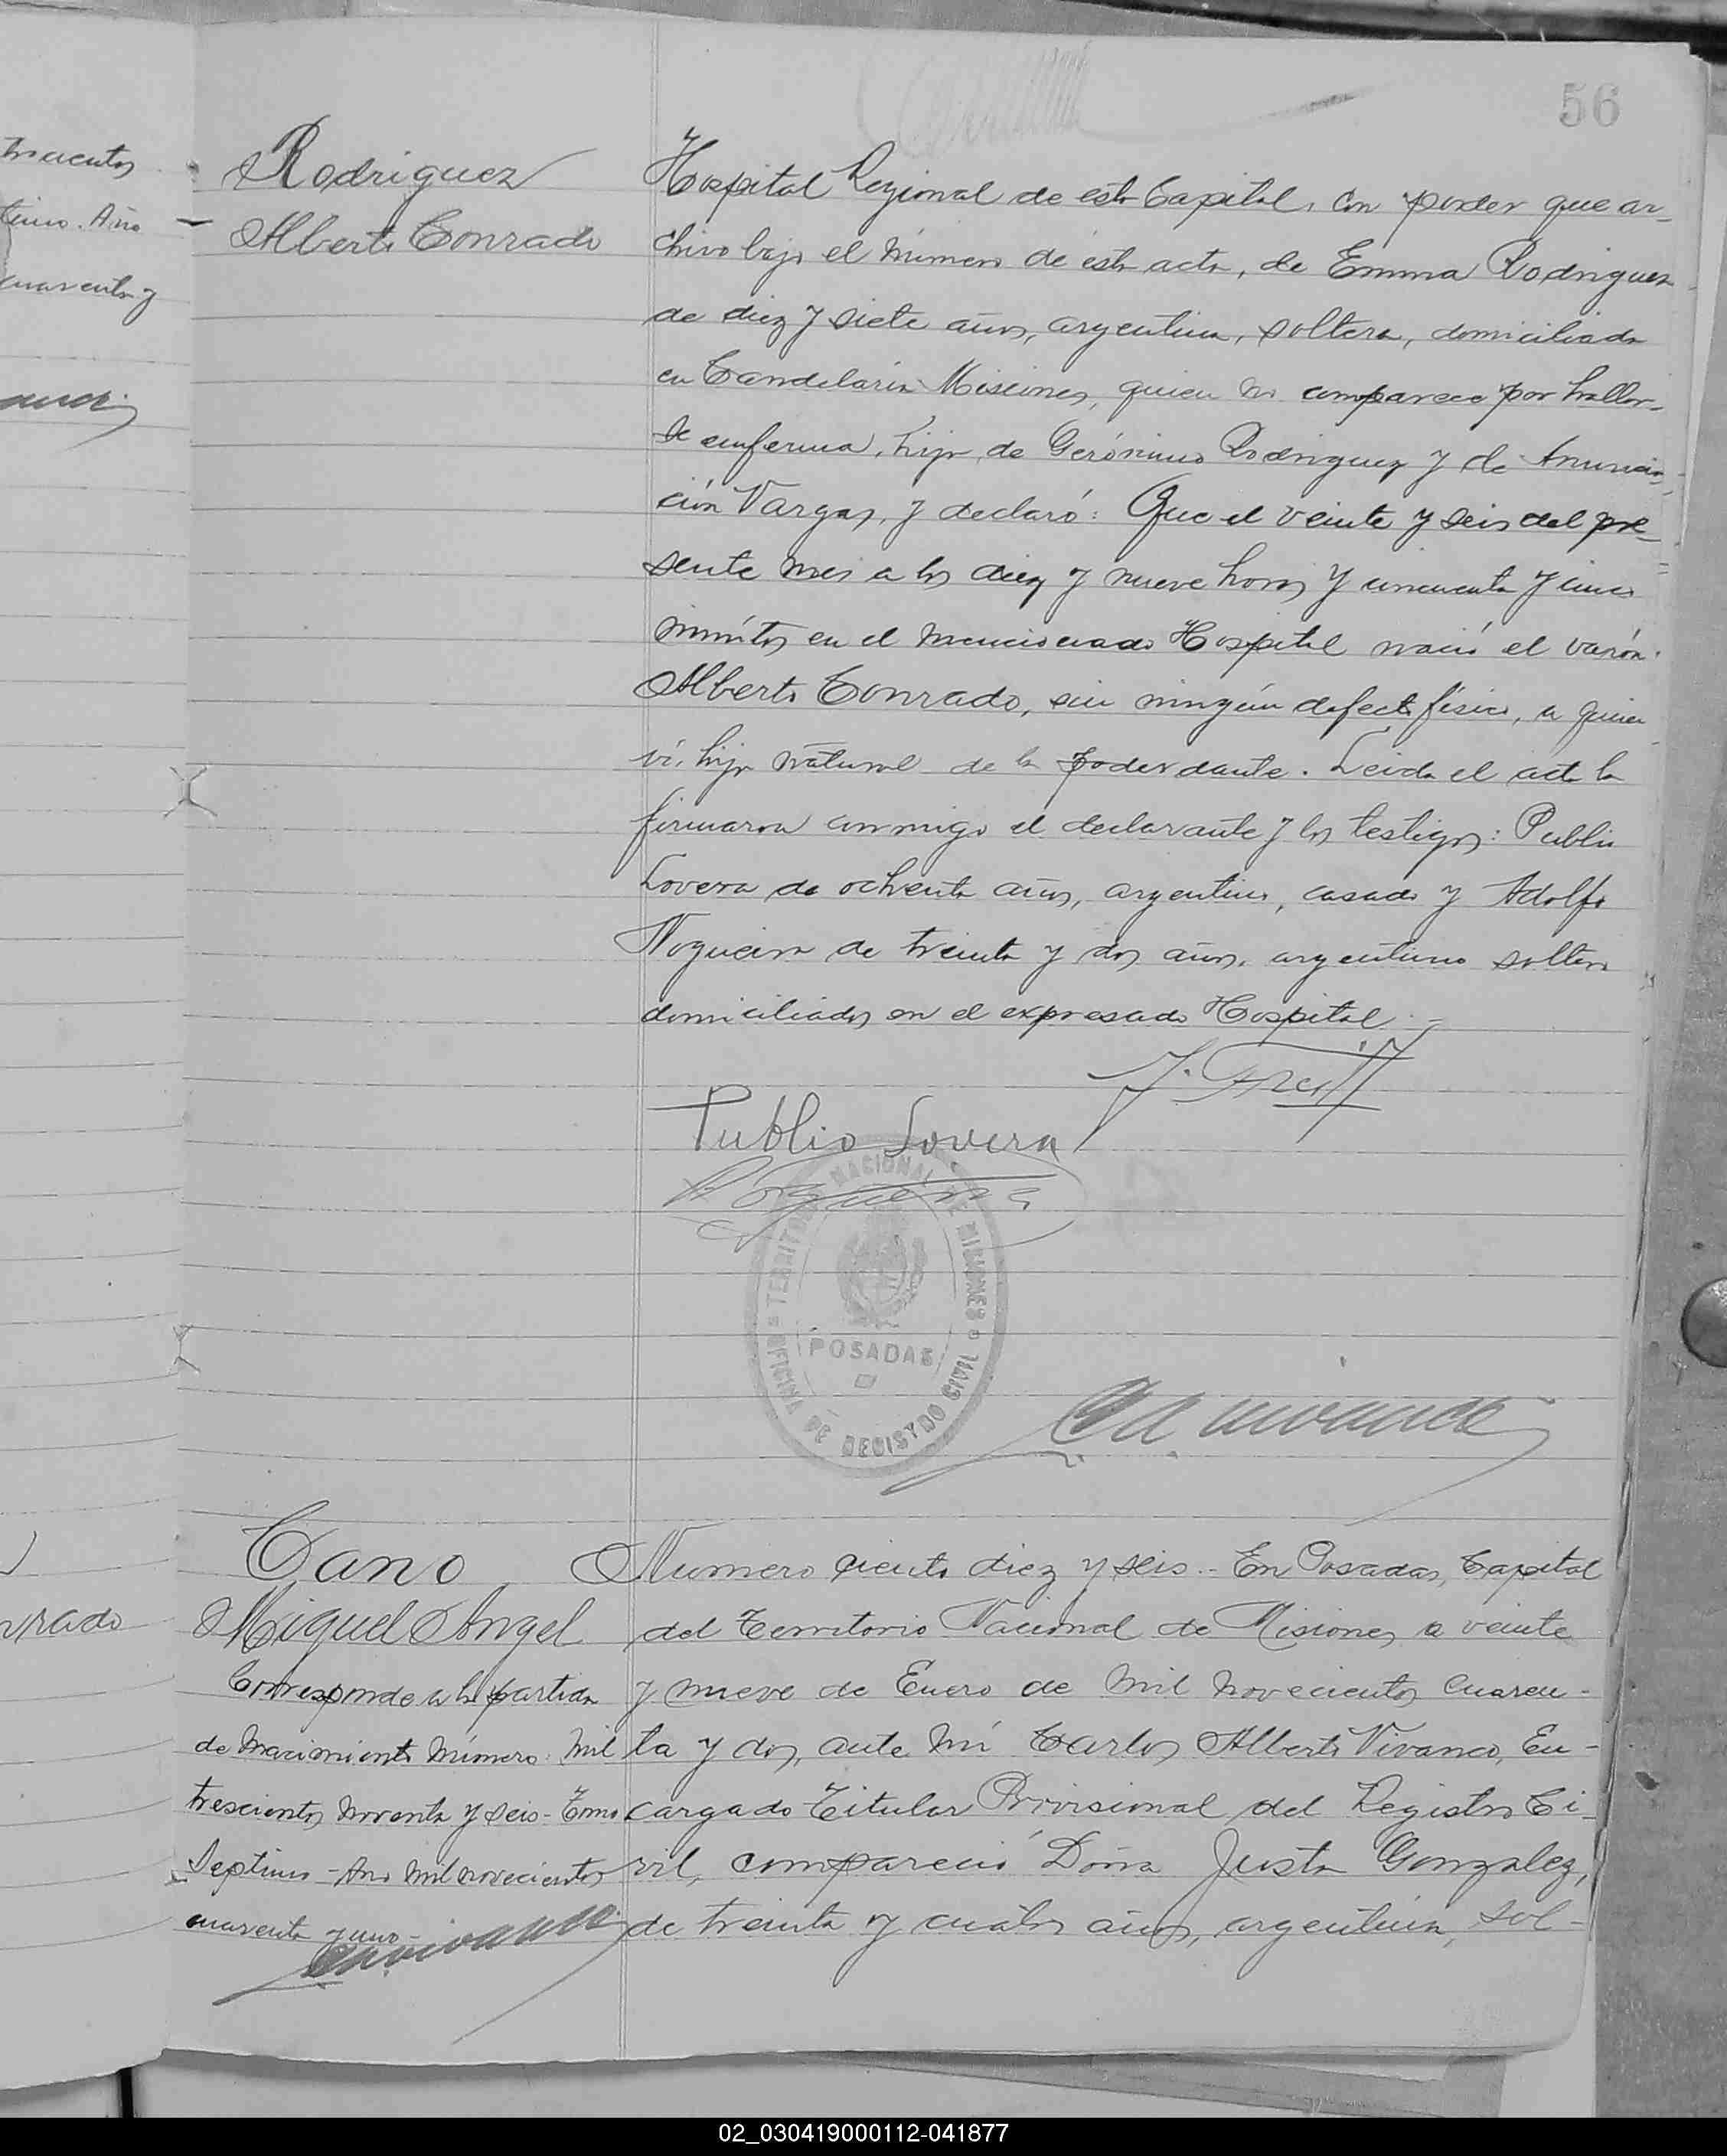 56
Rodriguez
Alberto Conrado
Hospital Regional de esta Capital, con poder que ar-
chivo bajo el número de ésta acta, de Emma Rodriguez
de diez y siete años, argentina, soltera, domiciliada
en Candelaria Misiones, quien no comparece por hallar-
se enferma, hija de Gerónimo Rodriguez y de Anuncia-
ción Vargas, y declaró: Que el veinte y seis del pre-
sente mes a las diez y nueve horas y cincuenta y cinco
minutos en el mencionado Hospital nació el varón
Alberto Conrado, sin ningún defecto físico, a quien
ví, hijo natural de la poderdante. Leida el acta la
firmaron conmigo el declarante y los testigos: Publio
Lovera de ochenta años, argentino, casado y Adolfo
Nogueira de treinta y dos años, argentino soltero
domiciliados en el expresado Hospital.-
Publio Lovera
Nogueira
TERRITORIO NACIONAL DE MISIONES
OFICINA DE REGISTRO CIVIL
POSADAS
CAVivanco
Cano
Miguel Angel
Corresponde a la partida
de nacimiento número: mil
trescientos noventa y seis- Tomo
Septimo - Año mil novecientos
cuarenta y uno-
CAVivanco
Numero ciento diez y seis.- En Posadas, Capital
del Territorio Nacional de Misiones a veinte
y nueve de Enero de mil novecientos cuaren-
ta y dos, ante mí Carlos Alberto Vivanco, En-
cargado Titular Provisional del Registro Ci-
vil, compareció Doña Justa Gonzalez,
de treinta y cuatro años, argentina, sol-
trescientos
timo. Año
cuarenta y
nrado
02_030419000112-041877